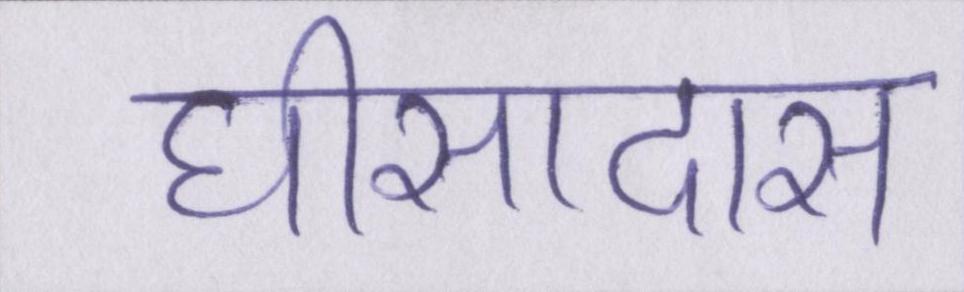 घीसादास